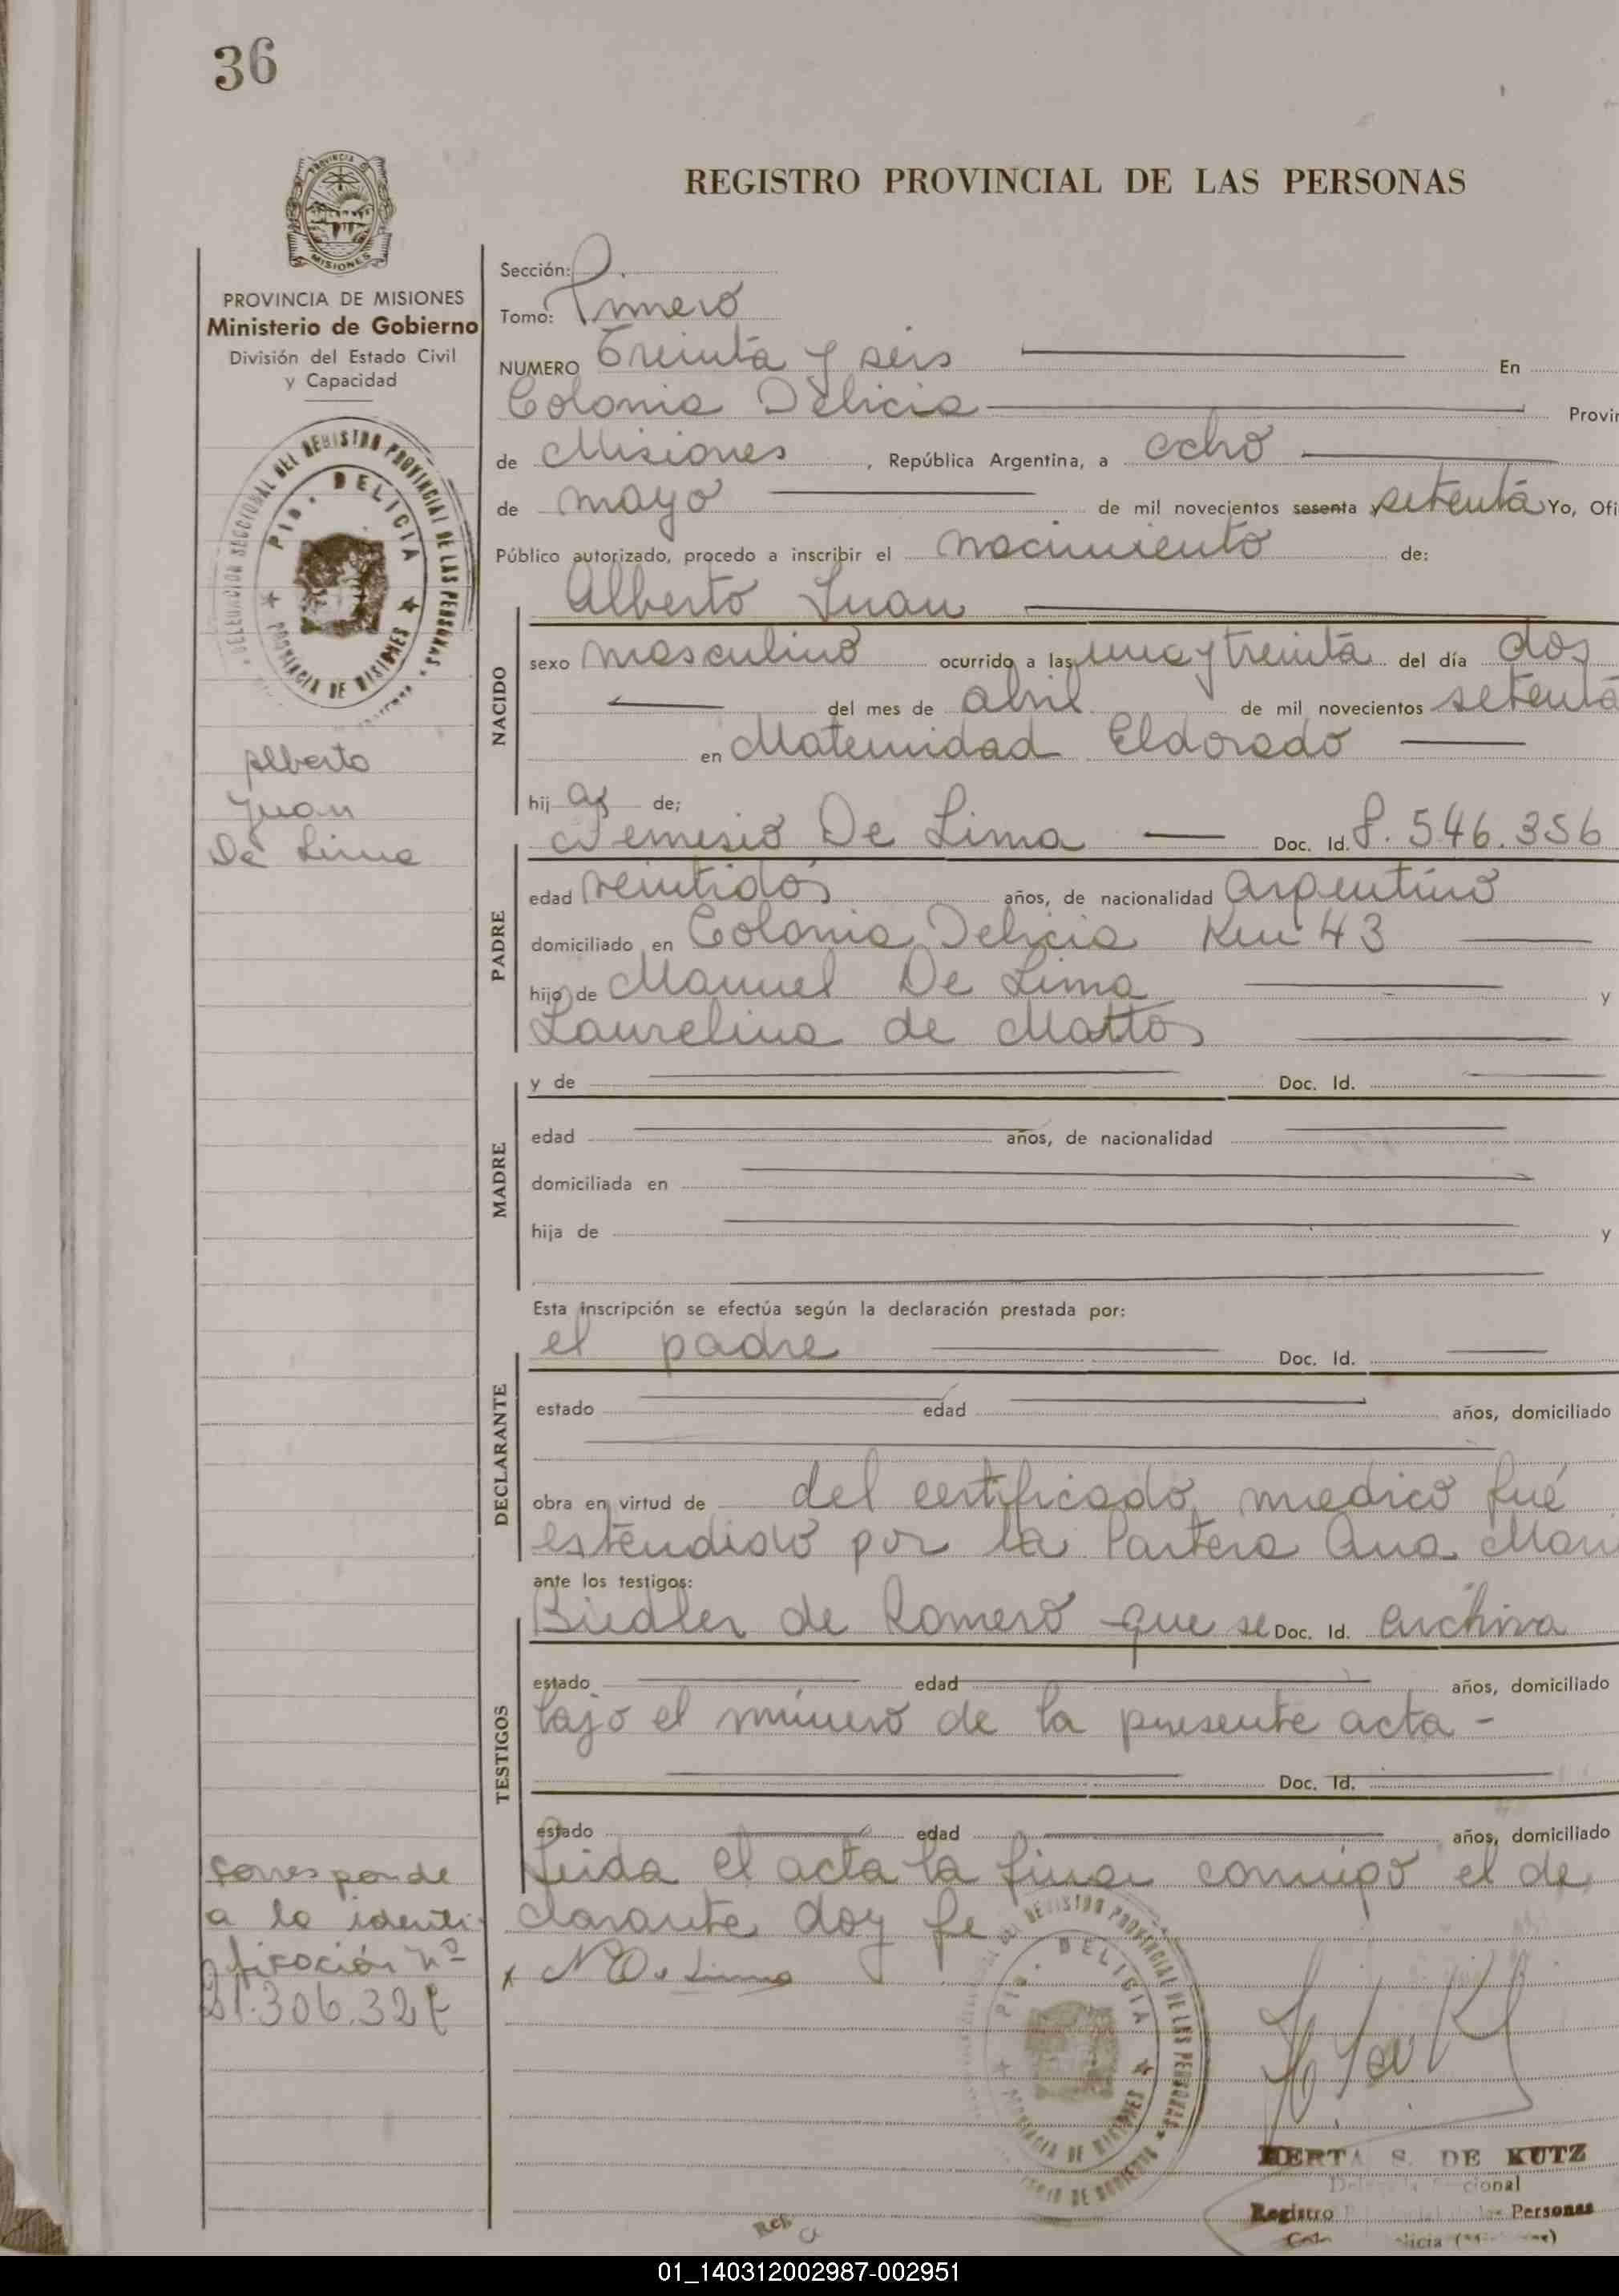 36
PROVINCIA DE
MISIONES
REGISTRO PROVINCIAL DE LAS PERSONAS
PROVINCIA DE MISIONES
Ministerio de Gobierno
División del Estado Civil
y Capacidad
DELEGACION SECCIONAL DEL REGISTRO PROVINCIAL DE LAS PERSONAS
DELICIA
PROVINCIA DE MISIONES
Alberto
Juan
De Lima
Corresponde
a la identi-
ficación nº
21.306.327
Sección:
Tomo: Primero
NUMERO Treinta y seis En
Colonia Delicia Provin
de Misiones, República Argentina, a ocho
de mayo de mil novecientos sesenta setenta Yo, Ofi
Público autorizado, procedo a inscribir el nacimiento de:
Alberto Juan
NACIDO
sexo masculino ocurrido a las una y treinta del día dos
del mes de abril de mil novecientos setenta
en Maternidad Eldorado
hij os de;
PADRE
Nemesio De Lima Doc. Id. 8.546.356
edad veintidós años, de nacionalidad argentino
domiciliado en Colonia Delicia Km 43
hijo de Manuel De Lima y
Laurelina de Mattos
MADRE
y de Doc. Id.
edad años, de nacionalidad
domiciliada en
hija de y
Esta inscripción se efectúa según la declaración prestada por:
DECLARANTE
el padre Doc. Id.
estado edad años, domiciliado
obra en virtud de del certificado medico fué
estendido por la Partera Ana Mari
ante los testigos:
TESTIGOS
Biedler de Romero que se Doc. Id. archiva
estado edad años, domiciliado
bajo el número de la presente acta -
Doc. Id.
estado edad años, domiciliado
Leida el acta la firma conmigo el de
clarante doy fe
x N De Lima
REGISTRO PROVINCIAL DE LAS PERSONAS
DELICIA
PROVINCIA DE MISIONES
HERTA S. DE KUTZ
Registro Personas
01_140312002987-002951